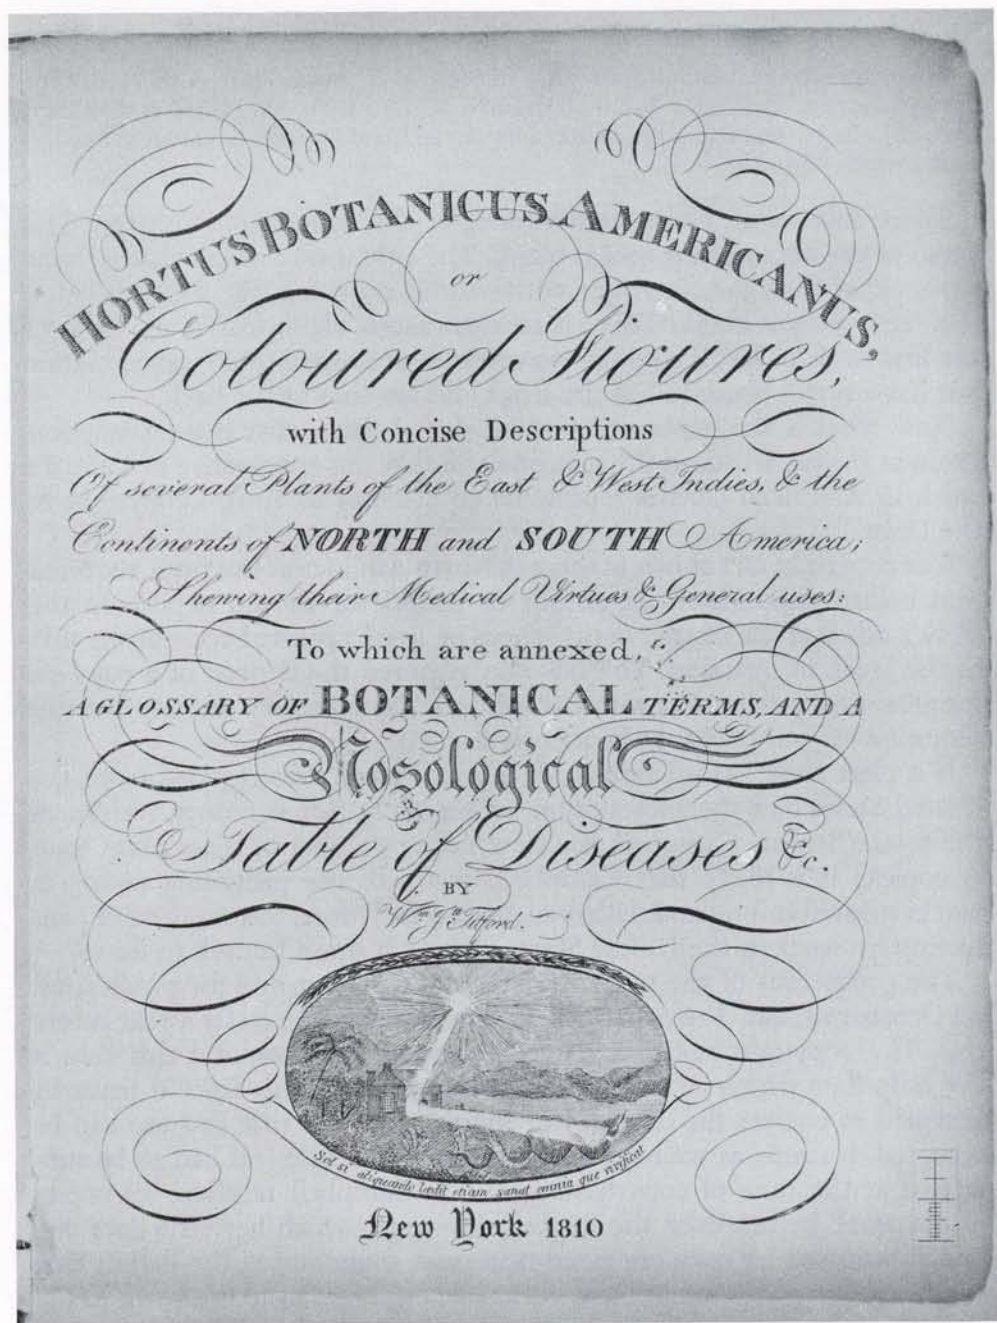 HORTUS BOTANICUS AMERICANUS,
or
Coloured Figures,
with Concise Descriptions
Of several Plants of the East & West Indies, & the
Continents of NORTH and SOUTH America;
Shewing their Medical Virtues & General uses:
To which are annexed,
A GLOSSARY OF BOTANICAL TERMS, AND A
Nosological
Table of Diseases &c.
BY
Wm. Jn. Titford.
Sol si aliquando lædit etiam sanat omnia que vivificat
New York 1810